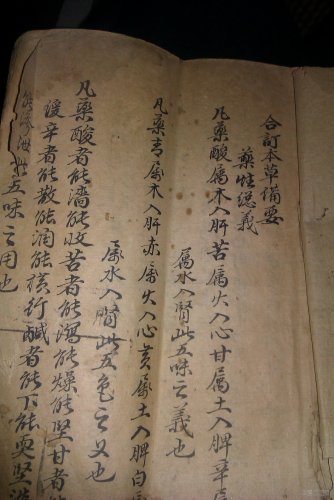 合訂本草備要
藥性總義
凡藥酸屬木入肝苦屬火入心甘屬土入脾辛
屬水入腎此五味之義也
凡藥青屬木入肝赤屬火入心黃屬土入脾白
屬水入腎此五色之义也
凡藥酸者能濇能收苦者能瀉能燥能堅甘者能
緩辛者能散能潤能橫行鹹者能下能耎堅
五味之用也